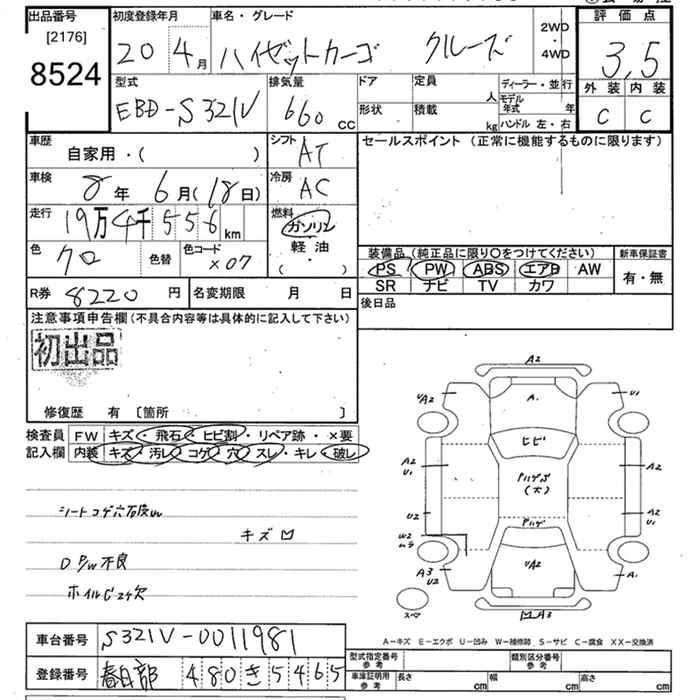 出品番号
[2176]
8524
初度登録年月
20 4月
車名・グレード
ハイゼットカーゴ クルーズ
2WD
・
4WD
評価点
3.5
型式
EBD-S321V
排気量
660 cc
ドア
形状
定員 人
積載 kg
ディーラー・並行
モデル年式 年
ハンドル 左・右
外装 内装
C C
車歴
自家用・( )
シフト
AT
セールスポイント (正常に機能するものに限ります)
車検
8年 6月(18日)
冷房
AC
走行
19万4千556km
燃料
ガソリン
軽油
( ・ )
色
クロ
色替
色コード
×07
装備品 (純正品に限り○をつけてください)
PS PW ABS エアB AW
SR ナビ TV カワ
新車保証書
有・無
R券 8220円
名変期限 月 日
後日品
注意事項申告欄(不具合内容等は具体的に記入して下さい)
初出品
修復歴 有 〔箇所 〕
検査員
記入欄
FW キズ・飛石・ヒビ割・リペア跡・×要
内装 キズ・汚レ・コゲ・穴・スレ・キレ・破レ
シートコゲ穴
キズ
D P/W不良
A2
A.
UA2
U1
ヒビ
A2
U1
(大)
ハゲ
U2
A2
U1
W2
ムラ
UA2
A3
U2
A.
スペア
A3
A-キズ E-エクボ U-凹み W-補修跡 S-サビ C-腐食 XX-交換済
車台番号
S321V-0011981
登録番号
春日部 480 き 5465
型式指定番号
参考
類別区分番号
参考
車庫証明用
参考
長さ cm
幅 cm
高さ cm